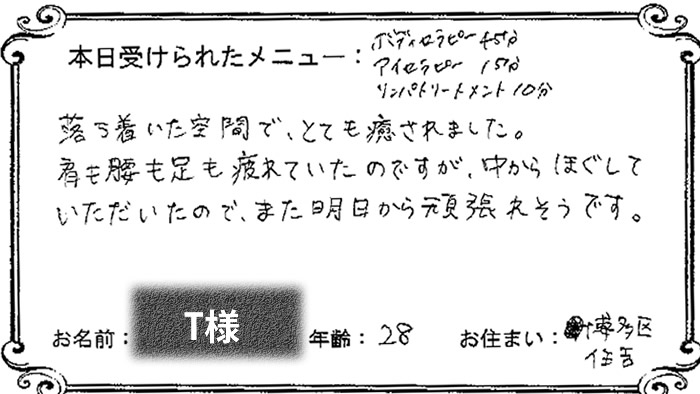 本日受けられたメニュー：ボディセラピー 45分
アイセラピー 15分
リンパトリートメント 10分
落ち着いた空間で、とても癒されました。
肩も腰も足も疲れていたのですが、中からほぐして
いただいたので、また明日から頑張れそうです。
お名前：T様 年齢：28 お住まい：博多区
住吉